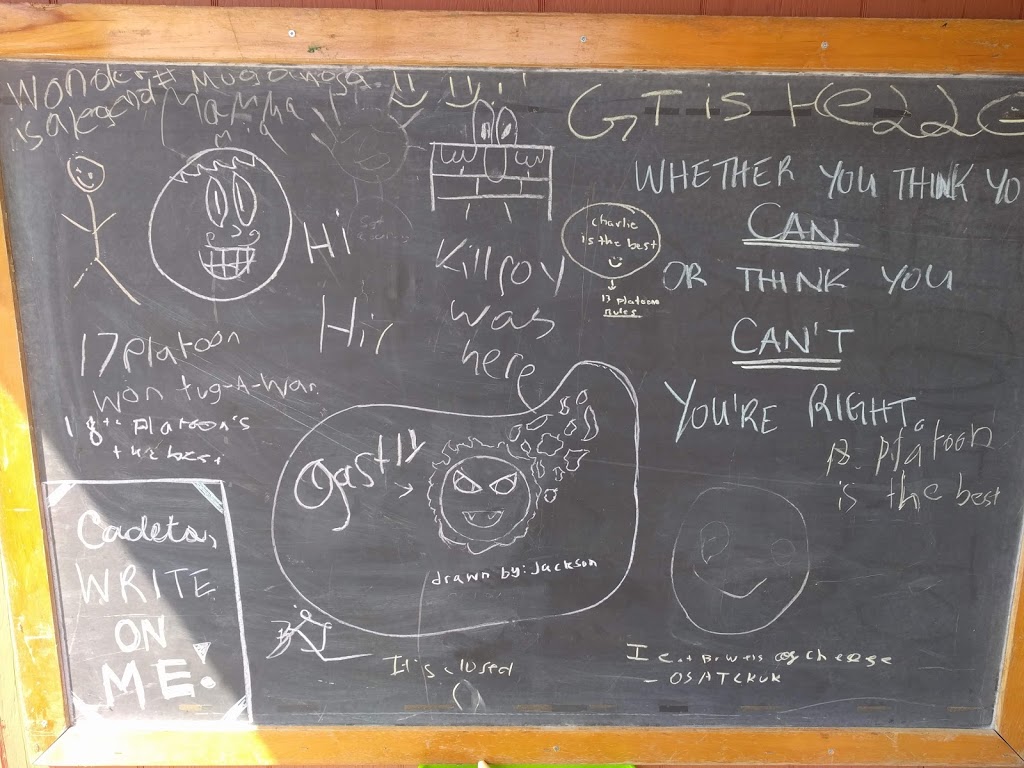 is a legend
GT is
WHETHER YOU THINK YO
CAN
OR THINK YOU
CAN'T
YOU'RE RIGHT
Hi
Hi
Killroy
was
here
charlie
is the best
17 platoon
rules
17 platoon
won tug-A-War.
18th Platoon's
the best
platoon
is the best
gastly
drawn by: Jackson
Cadets,
WRITE
ON
ME!
It's closed
I eat Bowls of cheese